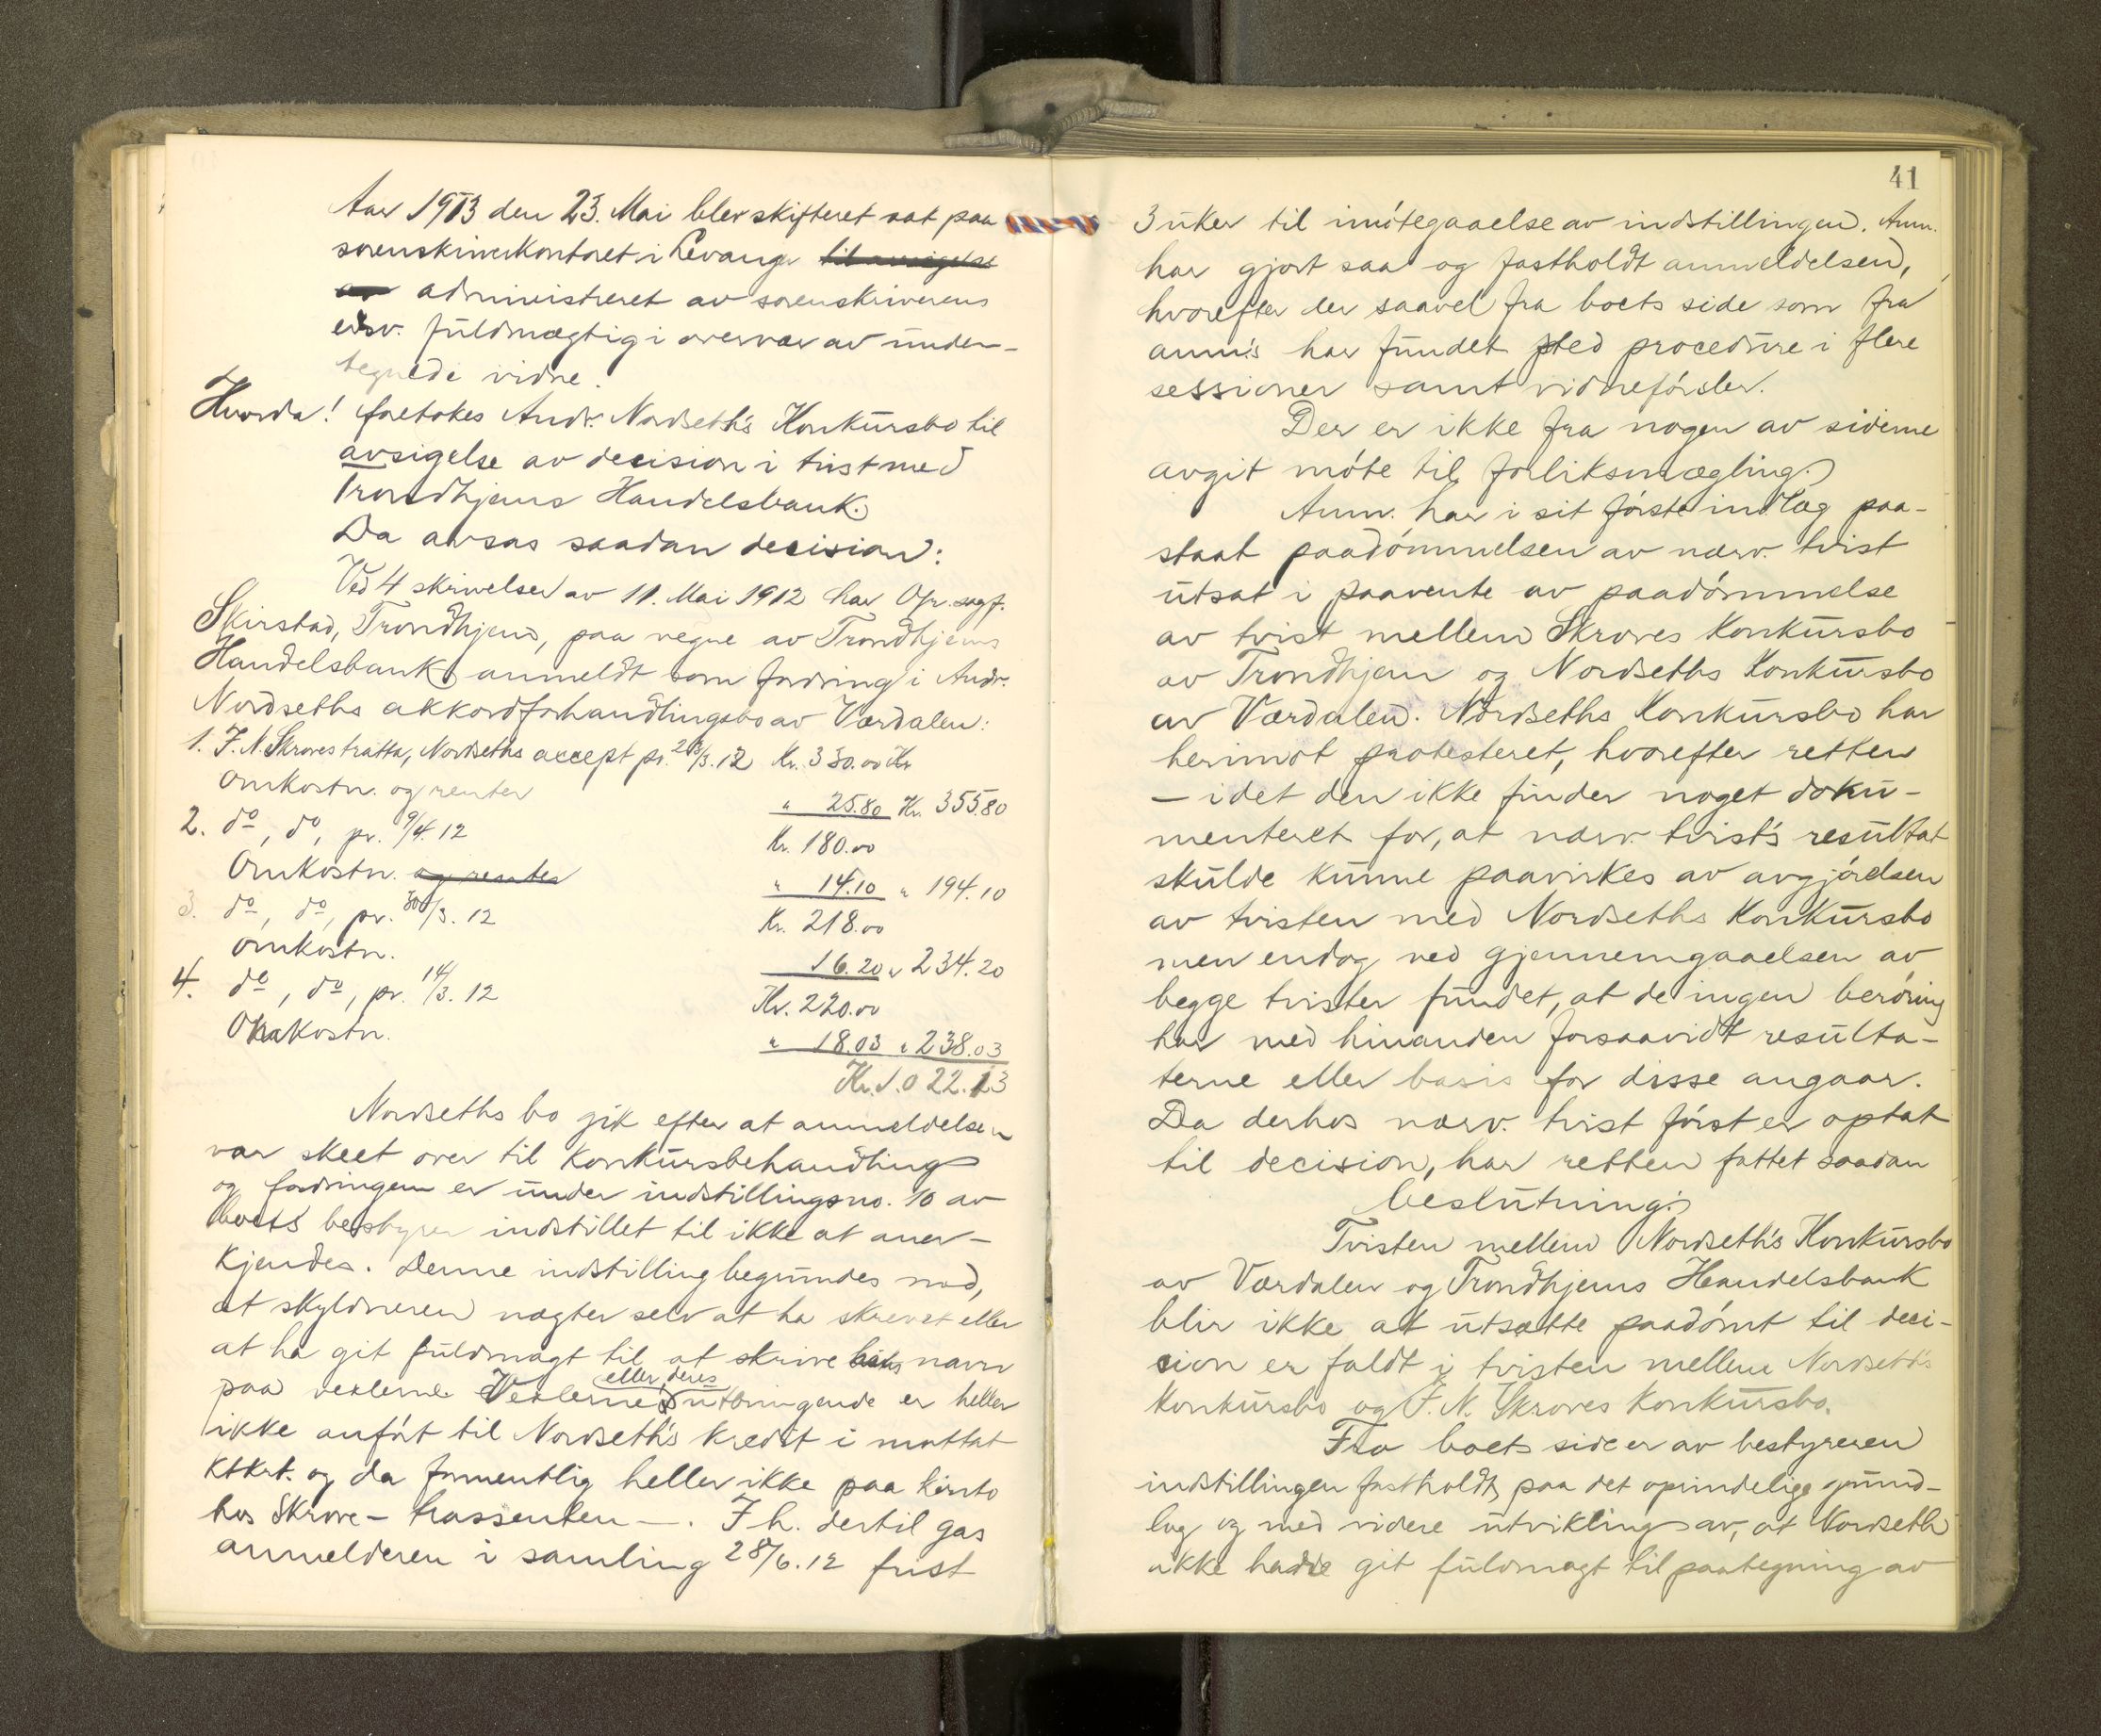 Aar 1913 den 23. Mai blev skifteret sat paa
sorenskriverkontoret i Levanger til avsigelse
av administreret av sorenskriverens
edsv. fuldmægtig i overvær av under-
tegnede vidne.
Hvorda! foretokes Andr. Nordseth's Konkursbo til
avsigelse av decision i tvist med
Trondhjems Handelsbank.
Da avsas saadan decision:
Ved 4 skrivelser av 11. Mai 1912 har Ofr. sagf.
Skirstad, Trondhjem, paa vegne av Trondhjems
Handelsbank anmeldt som fordring i Andr.
Nordseths akkordforhandlingsbo av Værdalen:
1. J. N. Skroves tratta, Nordseths accept pr. 28/3.12 Kr. 330.00 Kr
Omkostn. og renter " 25.80 Kr. 355.80
2. do, do, pr. 9/4.12 Kr. 180.00
Omkostn. og renter " 14.10 " 194.10
3. do, do, pr. 30/3.12 Kr. 218.00
Omkostn. 16.20 " 234.20
4. do, do, pr. 14/3.12 Kr. 220.00
Omkostn. " 18.03 " 238.03
Kr. 1.022.13
Nordseths bo gik efter at anmeldelsen
var skeet over til konkursbehandling
og fordringen er under indstillingsno. 10 av
boets bestyrer indstillet til ikke at aner-
kjendes. Denne indstilling begrundes med,
at skyldneren nægter selv at ha skrevet eller
at ha git fuldmagt til at skrive hans navn
paa vekslerne. Vekslerne eller deres utbringende er heller
ikke anført til Nordseth's kredit i mottat
ktkrt. og da formentlig heller ikke paa konto
hos Skrove - trassenten -. I h. dertil gas
anmelderen i samling 28/6.12 frist
41
3 uker til imøtegaaelse av indstillingen. Anm.
har gjort saa og fastholdt anmeldelsen,
hvorefter der saavel fra boets side som fra
anm's har fundet sted procedure i flere
sessioner samt vidneførsler.
Der er ikke fra nogen av siderne
avgit møte til forliksmægling.
Anm. har i sit første indlæg paa-
staat paadømmelsen av nærv. tvist
utsat i paavente av paadømmelse
av tvist mellem Skroves Konkursbo
av Trondhjem og Nordseths Konkursbo
av Værdalen. Nordseths Konkursbo har
herimot protesteret, hvorefter retten
- idet den ikke finder noget doku-
menteret for, at nærv. tvist's resultat
skulde kunne paavirkes av avgjørelsen
av tvisten med Nordseths Konkursbo
men endog ved gjennemgaaelsen av
begge tvister fundet, at de ingen berøring
har med hinanden forsaavidt resulta-
terne eller basis for disse angaar.
Da derhos nærv. tvist først er optat
til decision, har retten fattet saadan
beslutning:
Tvisten mellem Nordseth's Konkursbo
av Værdalen og Trondhjems Handelsbank
blir ikke at utsætte paadømt til deci-
sion er faldt i tvisten mellem Nordseth's
Konkursbo og J. N. Skroves Konkursbo.
Fra boets side er av bestyreren
indstillingen fastholdt paa det oprindelige grund-
lag og med videre utvikling av, at Nordseth
ikke hadde git fuldmagt til paategning av